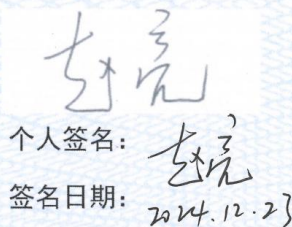 赵亮
个人签名：赵亮
签名日期：2024.12.23